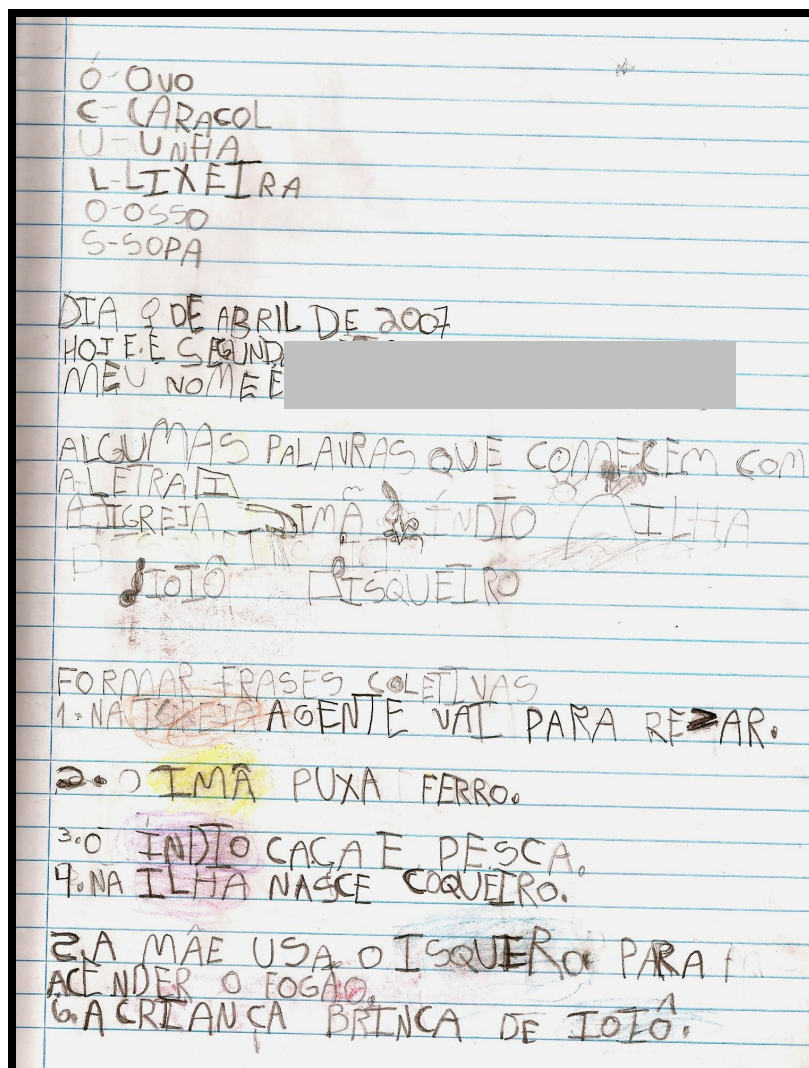 Ó-OVO
C-CARACOL
U-UNHA
L-LIXEIRA
O-OSSO
S-SOPA
DIA 9 DE ABRIL DE 2007
HOJE.É SEGUND
MEU NOME É
ALGUMAS PALAVRAS QUE COMECEM COM
A LETRA I
IGREJA IMÃ ÍNDIO ILHA
IOIÔ ISQUEIRO
FORMAR FRASES COLETIVAS
1. NA IGREJA AGENTE VAI PARA REZAR.
2. O IMÃ PUXA FERRO.
3.O ÍNDIO CAÇA E PESCA.
4. NA ILHA NASCE COQUEIRO.
5.A MÃE USA O ISQUERO PARA
ACENDER O FOGÃO.
6.A CRIANÇA BRINCA DE IOIÔ.